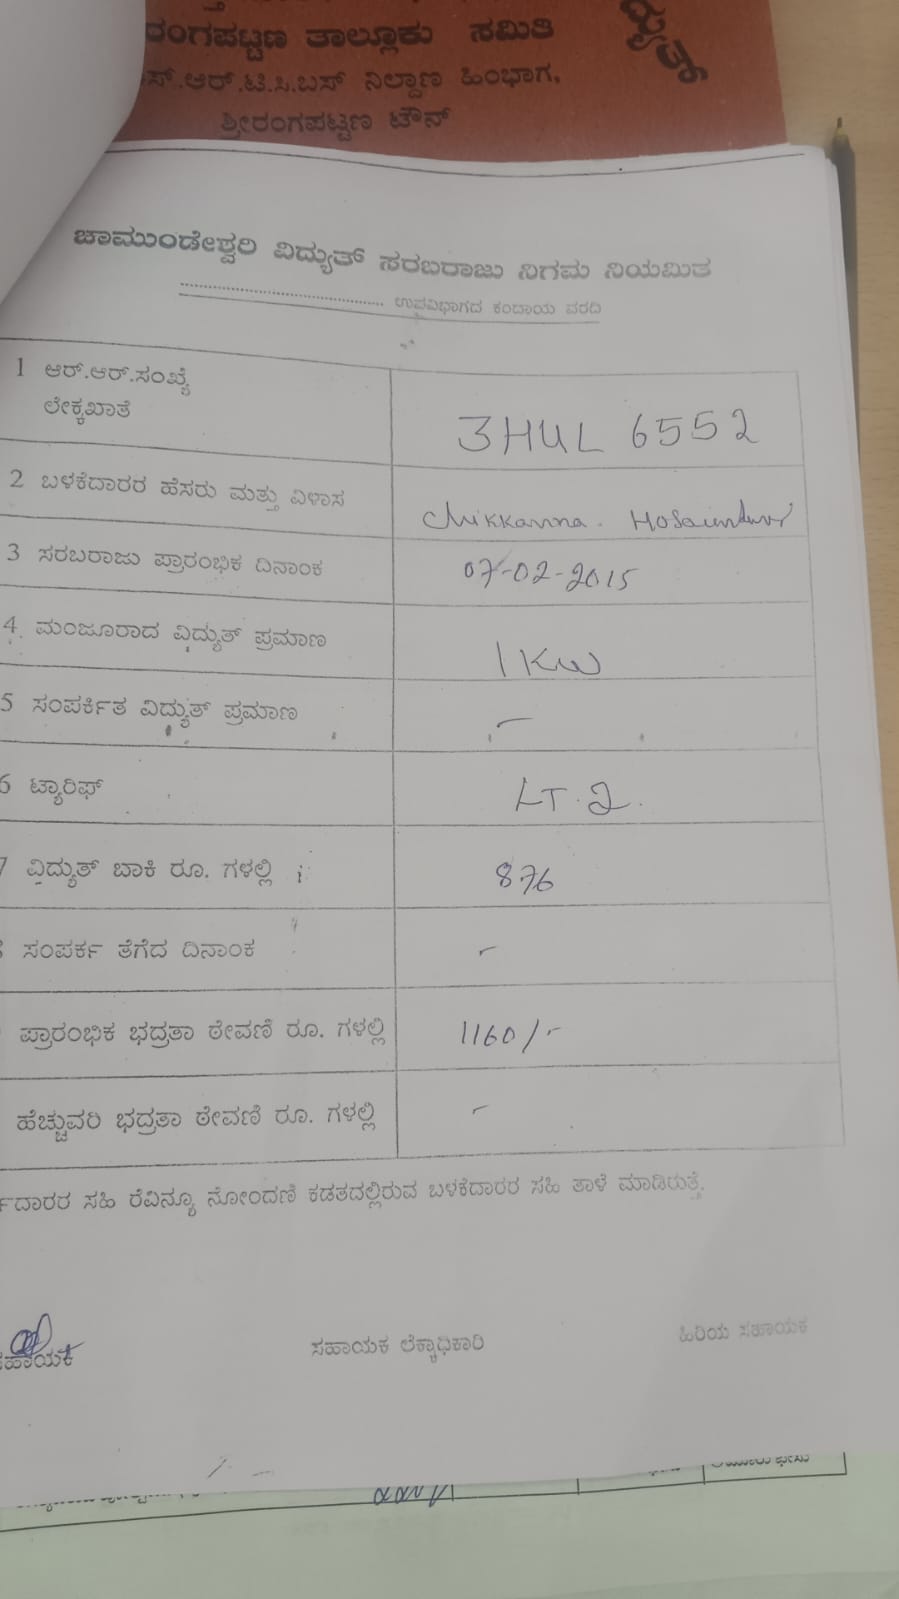 ರಂಗಪಟ್ಟಣ ತಾಲ್ಲೂಕು ಸಮಿತಿ
ಸ್.ಆರ್.ಟಿ.ಸಿ.ಬಸ್ ನಿಲ್ದಾಣ ಹಿಂಭಾಗ,
ಶ್ರೀರಂಗಪಟ್ಟಣ ಟೌನ್
ಚಾಮುಂಡೇಶ್ವರಿ ವಿದ್ಯುತ್ ಸರಬರಾಜು ನಿಗಮ ನಿಯಮಿತ
.......................................... ಉಪವಿಭಾಗದ ಕಂದಾಯ ವರದಿ
1 ಆರ್.ಆರ್.ಸಂಖ್ಯೆ
ಲೇಕ್ಕಖಾತೆ
3HUL 6552
2 ಬಳಕೆದಾರರ ಹೆಸರು ಮತ್ತು ವಿಳಾಸ
Chikkanna.
3 ಸರಬರಾಜು ಪ್ರಾರಂಭಿಕ ದಿನಾಂಕ
07-02-2015
4. ಮಂಜೂರಾದ ವಿದ್ಯುತ್ ಪ್ರಮಾಣ
1 KW
5 ಸಂಪರ್ಕಿತ ವಿದ್ಯುತ್ ಪ್ರಮಾಣ
-
6 ಟ್ಯಾರಿಫ್
LT.2.
7 ವಿದ್ಯುತ್ ಬಾಕಿ ರೂ. ಗಳಲ್ಲಿ
876
ಸಂಪರ್ಕ ತೆಗೆದ ದಿನಾಂಕ
-
ಪ್ರಾರಂಭಿಕ ಭದ್ರತಾ ಠೇವಣಿ ರೂ. ಗಳಲ್ಲಿ
1160/-
ಹೆಚ್ಚುವರಿ ಭದ್ರತಾ ಠೇವಣಿ ರೂ. ಗಳಲ್ಲಿ
-
ದಾರರ ಸಹಿ ರೆವಿನ್ಯೂ ನೋಂದಣಿ ಕಡತದಲ್ಲಿರುವ ಬಳಕೆದಾರರ ಸಹಿ ತಾಳೆ ಮಾಡಿರುತ್ತೆ.
ಸಹಾಯಕ
ಸಹಾಯಕ ಲೆಕ್ಕಾಧಿಕಾರಿ
ಹಿರಿಯ ಸಹಾಯಕ